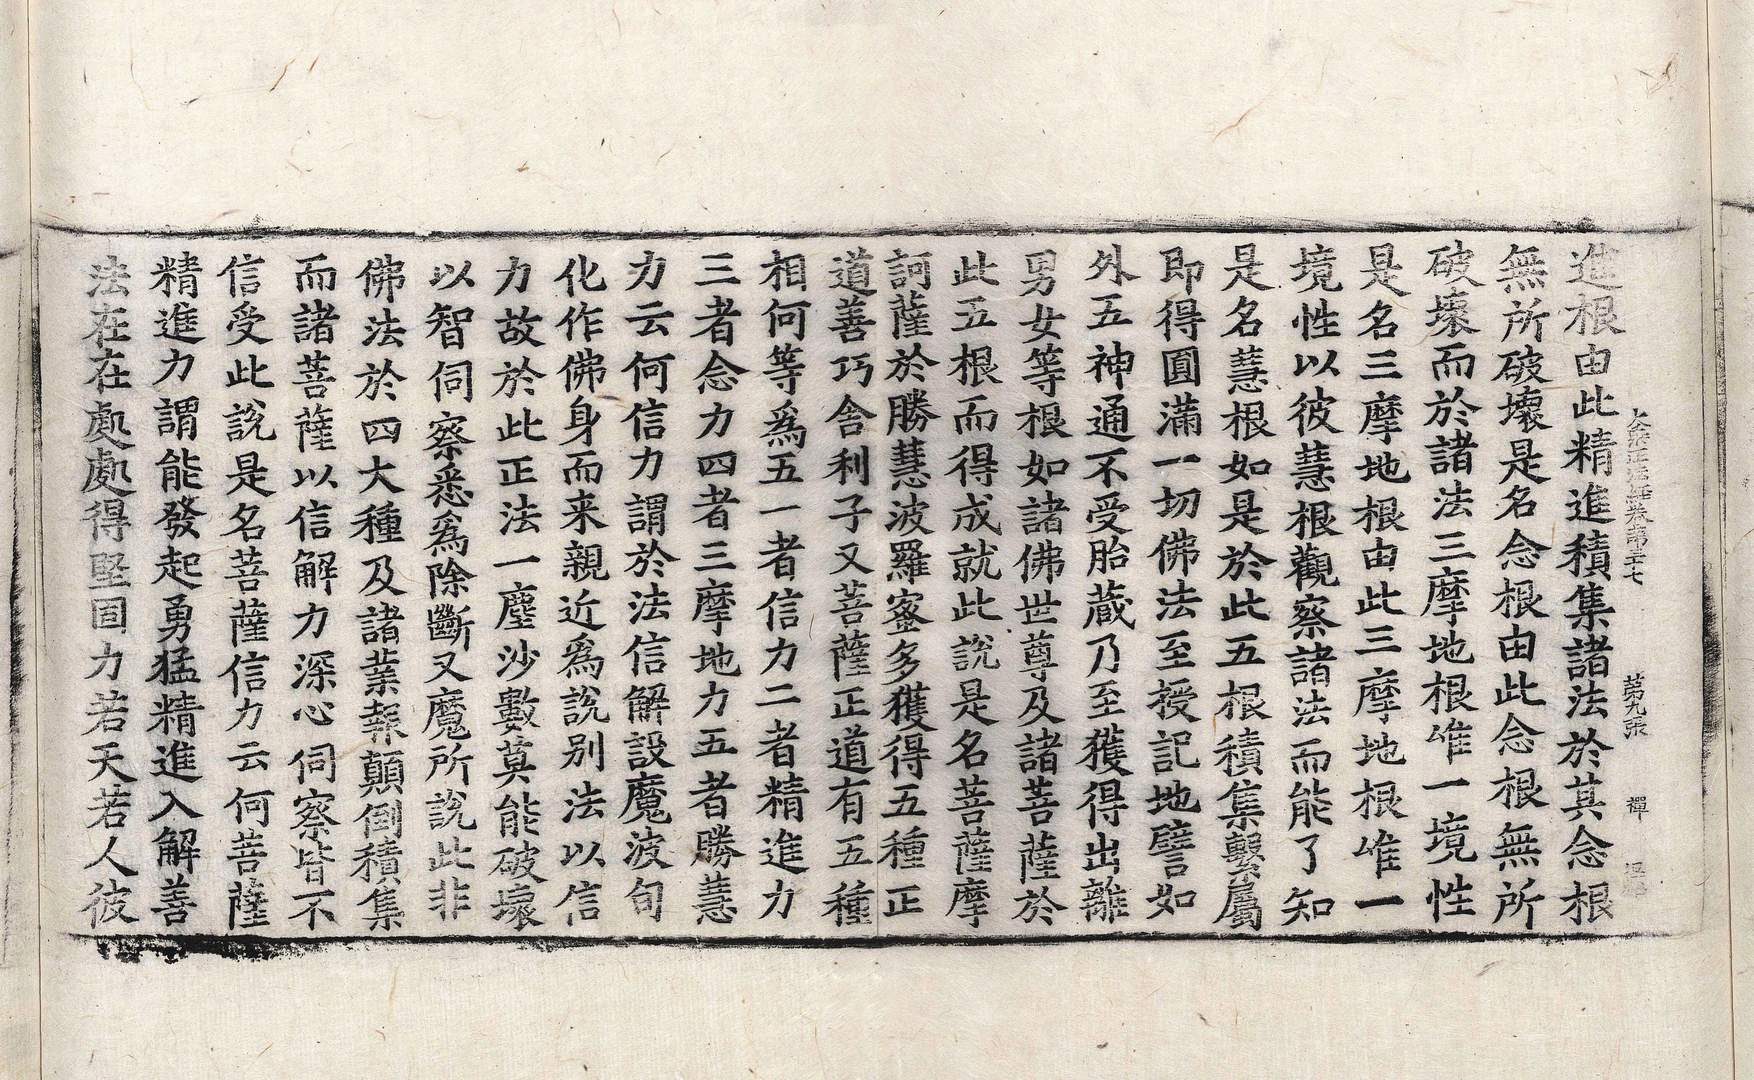 大乘正法經卷第三十七 第九張 禪
進根由此精進積集諸法於其念根
無所破壞是名念根由此念根無所
破壞而於諸法三摩地根唯一境性
是名三摩地根由此三摩地根唯一
境性以彼慧根觀察諸法而能了知
是名慧根如是於此五根積集繫屬
即得圓滿一切佛法至授記地譬如
外五神通不受胎蔵乃至獲得出離
男女等根如諸佛世尊及諸菩薩於
此五根而得成就此說是名菩薩摩
訶薩於勝慧波羅蜜多獲得五種正
道善巧舍利子又菩薩正道有五種
相何等爲五一者信力二者精進力
三者念力四者三摩地力五者勝慧
力云何信力謂於法信解設魔波旬
化作佛身而来親近爲說别法以信
力故於此正法一塵沙數莫能破壞
以智伺察悉爲除斷又魔所說此非
佛法於四大種及諸業報顛倒積集
而諸菩薩以信解力深心伺察皆不
信受此說是名菩薩信力云何菩薩
精進力謂能發起勇猛精進入解善
法在在處處得堅固力若天若人彼